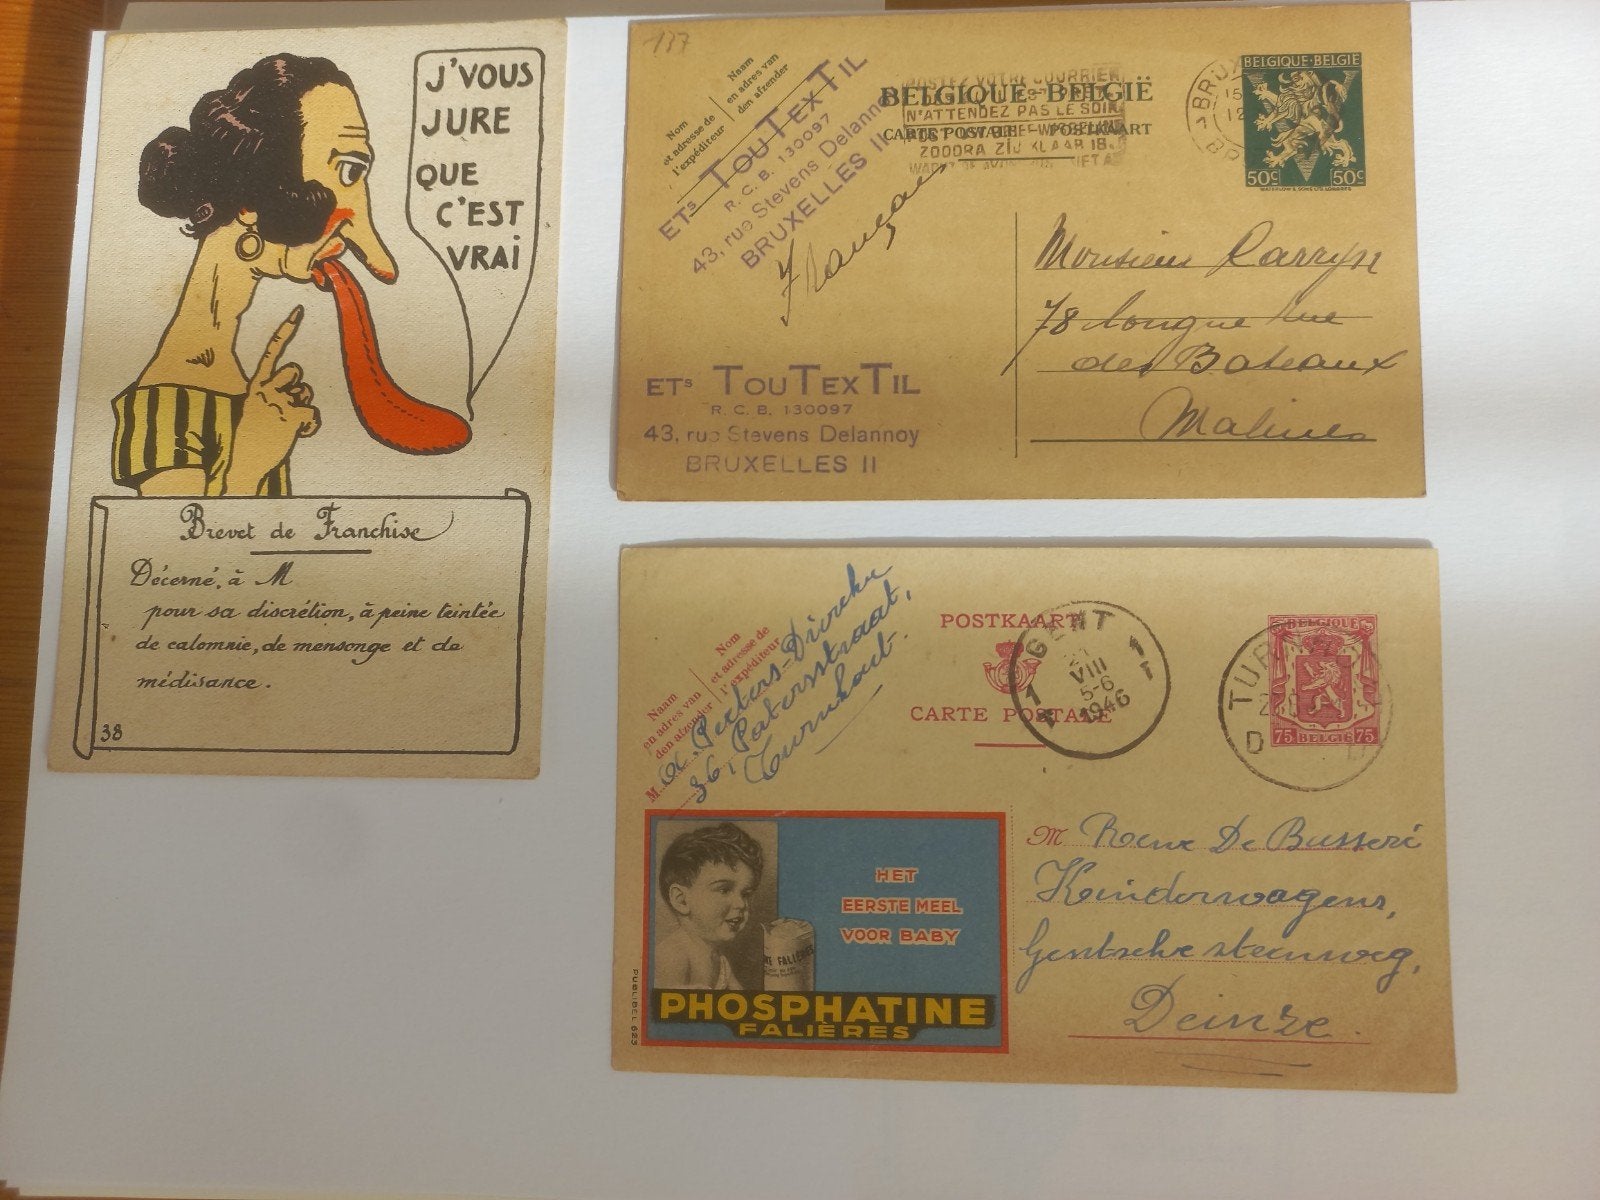 J'VOUS
JURE
QUE
C'EST
VRAI
Brevet de Franchise
Décerné, à M
pour sa discrétion, à peine teintée
de calomnie, de mensonge et de
médisance.
38
137
Nom
et adresse de
l'expéditeur
Naam
en adres van
den afzender
ETs TOUTEXTIL
R. C. B. 130097
43, rue Stevens Delannoy
BRUXELLES II
BELGIQUE-BELGIË
CARTE POSTALE - POSTKAART
POSTEZ VOTRE COURRIER
N'ATTENDEZ PAS LE SOIR
ZOODRA ZIJ KLAAR IS
BELGIQUE·BELGIË
50c 50c
WATERLOW & SONS LTD. LONDRES
Monsieur
78 longue rue
des Bateaux
Malines
ETs TOUTEXTIL
R. C. B. 130097
43, rue Stevens Delannoy
BRUXELLES II
Naam
en adres van
den afzender
Nom
et adresse de
l'expéditeur
M
Peeters
36, Patersstraat,
Turnhout.
POSTKAART
CARTE POSTALE
GENT
VIII
5-6
1946
1 1
BELGIQUE
75 BELGIË 75
TUR
D
M Rene De Busseré
Kinderwagens,
Gentsche steenweg,
Deinze.
HET
EERSTE MEEL
VOOR BABY
PHOSPHATINE
FALIÈRES
PUBLIBEL 623